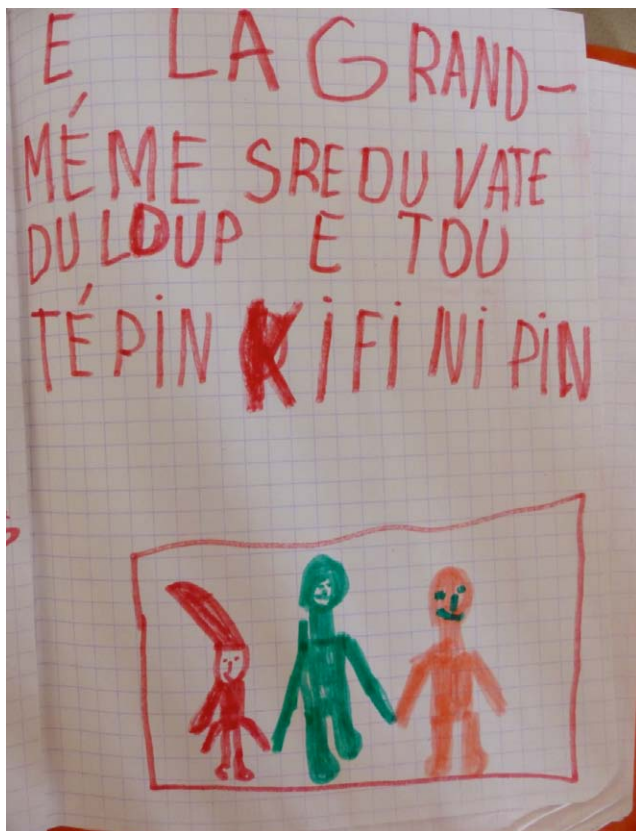 E LA GRAND-
MÉME SREDU VATE
DU LOUP E TOU
TÉPIN KIFINI PIN